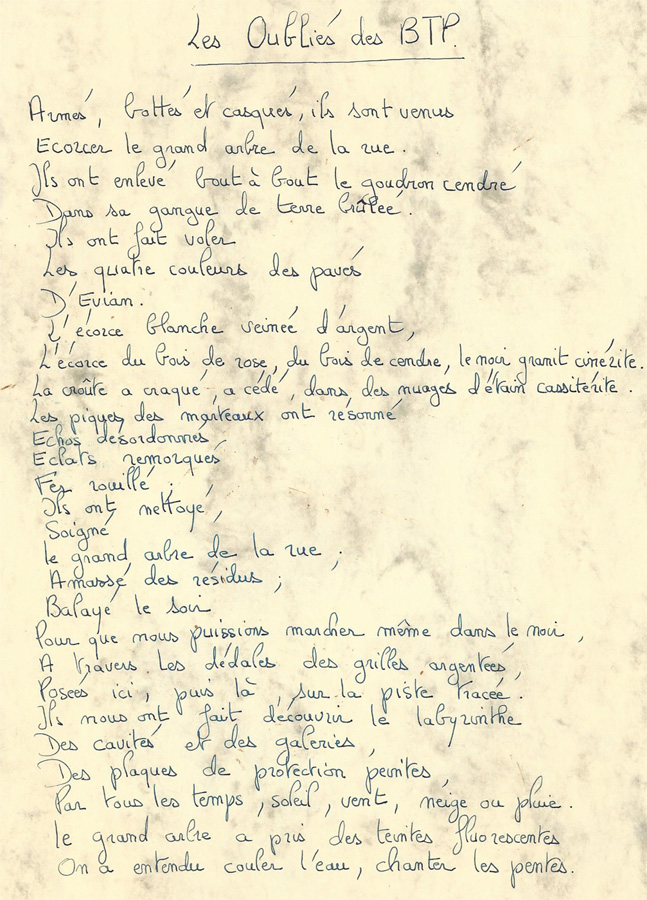 Les Oubliés des BTP.
Armés, bottés et casqués, ils sont venus
Ecorcer le grand arbre de la rue.
Ils ont enlevé bout à bout le goudron cendré
Dans sa gangue de terre brûlée.
Ils ont fait voler
Les quatre couleurs des pavés
D'Evian.
L'écorce blanche veinée d'argent,
L'écorce du bois de rose, du bois de cendre, le noir granit cinérite.
La croûte a craqué, a cédé, dans des nuages d'étain cassitérite.
Les piques des marteaux ont résonné
Echos désordonnés,
Eclats remorqués
Fer rouillé;
Ils ont nettoyé,
Soigné
le grand arbre de la rue;
Amassé des résidus;
Balayé le soir
Pour que nous puissions marcher même dans le noir,
A travers les dédales des grilles argentées,
Posées ici, puis là, sur la piste tracée.
Ils nous ont fait découvrir le labyrinthe
Des cavités et des galeries,
Des plaques de protection peintes,
Par tous les temps, soleil, vent, neige ou pluie.
le grand arbre a pris des teintes fluorescentes
On a entendu couler l'eau, chanter les pentes.